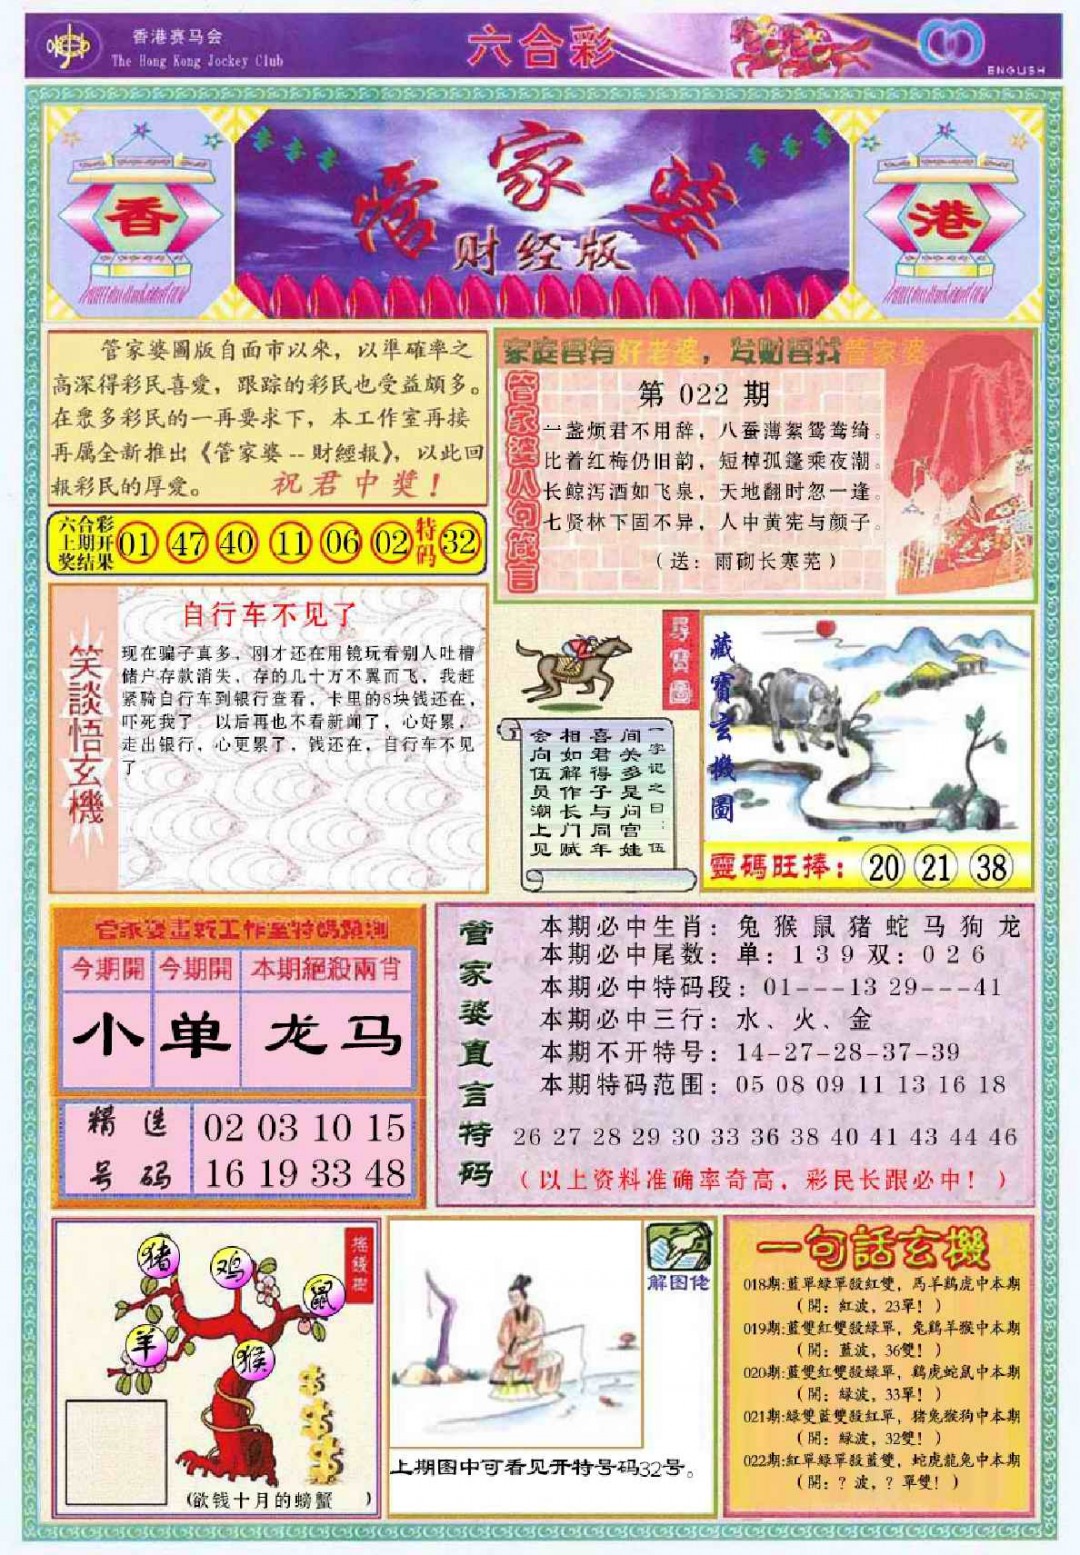 香港赛马会
The Hong Kong Jockey Club
六合彩
ENGLISH
香
管家婆
财经版
港
管家婆圖版自面市以來，以準確率之
高深得彩民喜愛，跟踪的彩民也受益頗多。
在眾多彩民的一再要求下，本工作室再接
再属全新推出《管家婆--財經報》，以此回
報彩民的厚爱。 祝君中獎！
六合彩
上期开
奖结果
01 47 40 11 06 02 特码 32
家庭要有好老婆，发财要找管家婆
管家婆八句箴言
第 022 期
一盏烦君不用辞，八蚕薄絮鸳鸯绮。
比着红梅仍旧韵，短棹孤篷乘夜潮。
长鲸泻酒如飞泉，天地翻时忽一逢。
七贤林下固不异，人中黄宪与颜子。
（送：雨砌长寒芜）
笑談悟玄機
自行车不见了
现在骗子真多，刚才还在用镜玩看别人吐槽
储户存款消失，存的几十万不翼而飞，我赶
紧骑自行车到银行查看，卡里的8块钱还在，
吓死我了，以后再也不看新闻了，心好累，
走出银行，心更累了，钱还在，自行车不见
了
尋寶圖
一字记之曰：伍
间关多是问宫娃
喜君得子与同年
相如解作长门赋
会向伍员潮上见
藏寶玄機圖
靈碼旺捧：20 21 38
管家婆畫新工作室特碼預测
今期開 今期開 本期絕殺兩肖
小 单 龙 马
精选
号码
02 03 10 15
16 19 33 48
管家婆直言特码
本期必中生肖：兔猴鼠猪蛇马狗龙
本期必中尾数：单：139双：026
本期必中特码段：01---13 29---41
本期必中三行：水、火、金
本期不开特号：14-27-28-37-39
本期特码范围：05 08 09 11 13 16 18
26 27 28 29 30 33 36 38 40 41 43 44 46
（以上资料准确率奇高，彩民长跟必中！）
摇錢樹
猪
鸡
鼠
羊
猴
(欲钱十月的螃蟹 )
解图佬
上期图中可看见开特号码32号。
一句話玄機
018期:藍單綠單殺紅雙，馬羊鷄虎中本期
（開：紅波，23單！）
019期:藍雙紅雙殺綠單，兔鷄羊猴中本期
（開：藍波，36雙！）
020期:藍雙紅雙殺綠單，鷄虎蛇鼠中本期
（開：綠波，33單！）
021期:綠雙藍雙殺紅單，猪兔猴狗中本期
（開：綠波，32雙！）
022期:紅單綠單殺藍雙，蛇虎龍兔中本期
（開：？波，？單雙！）